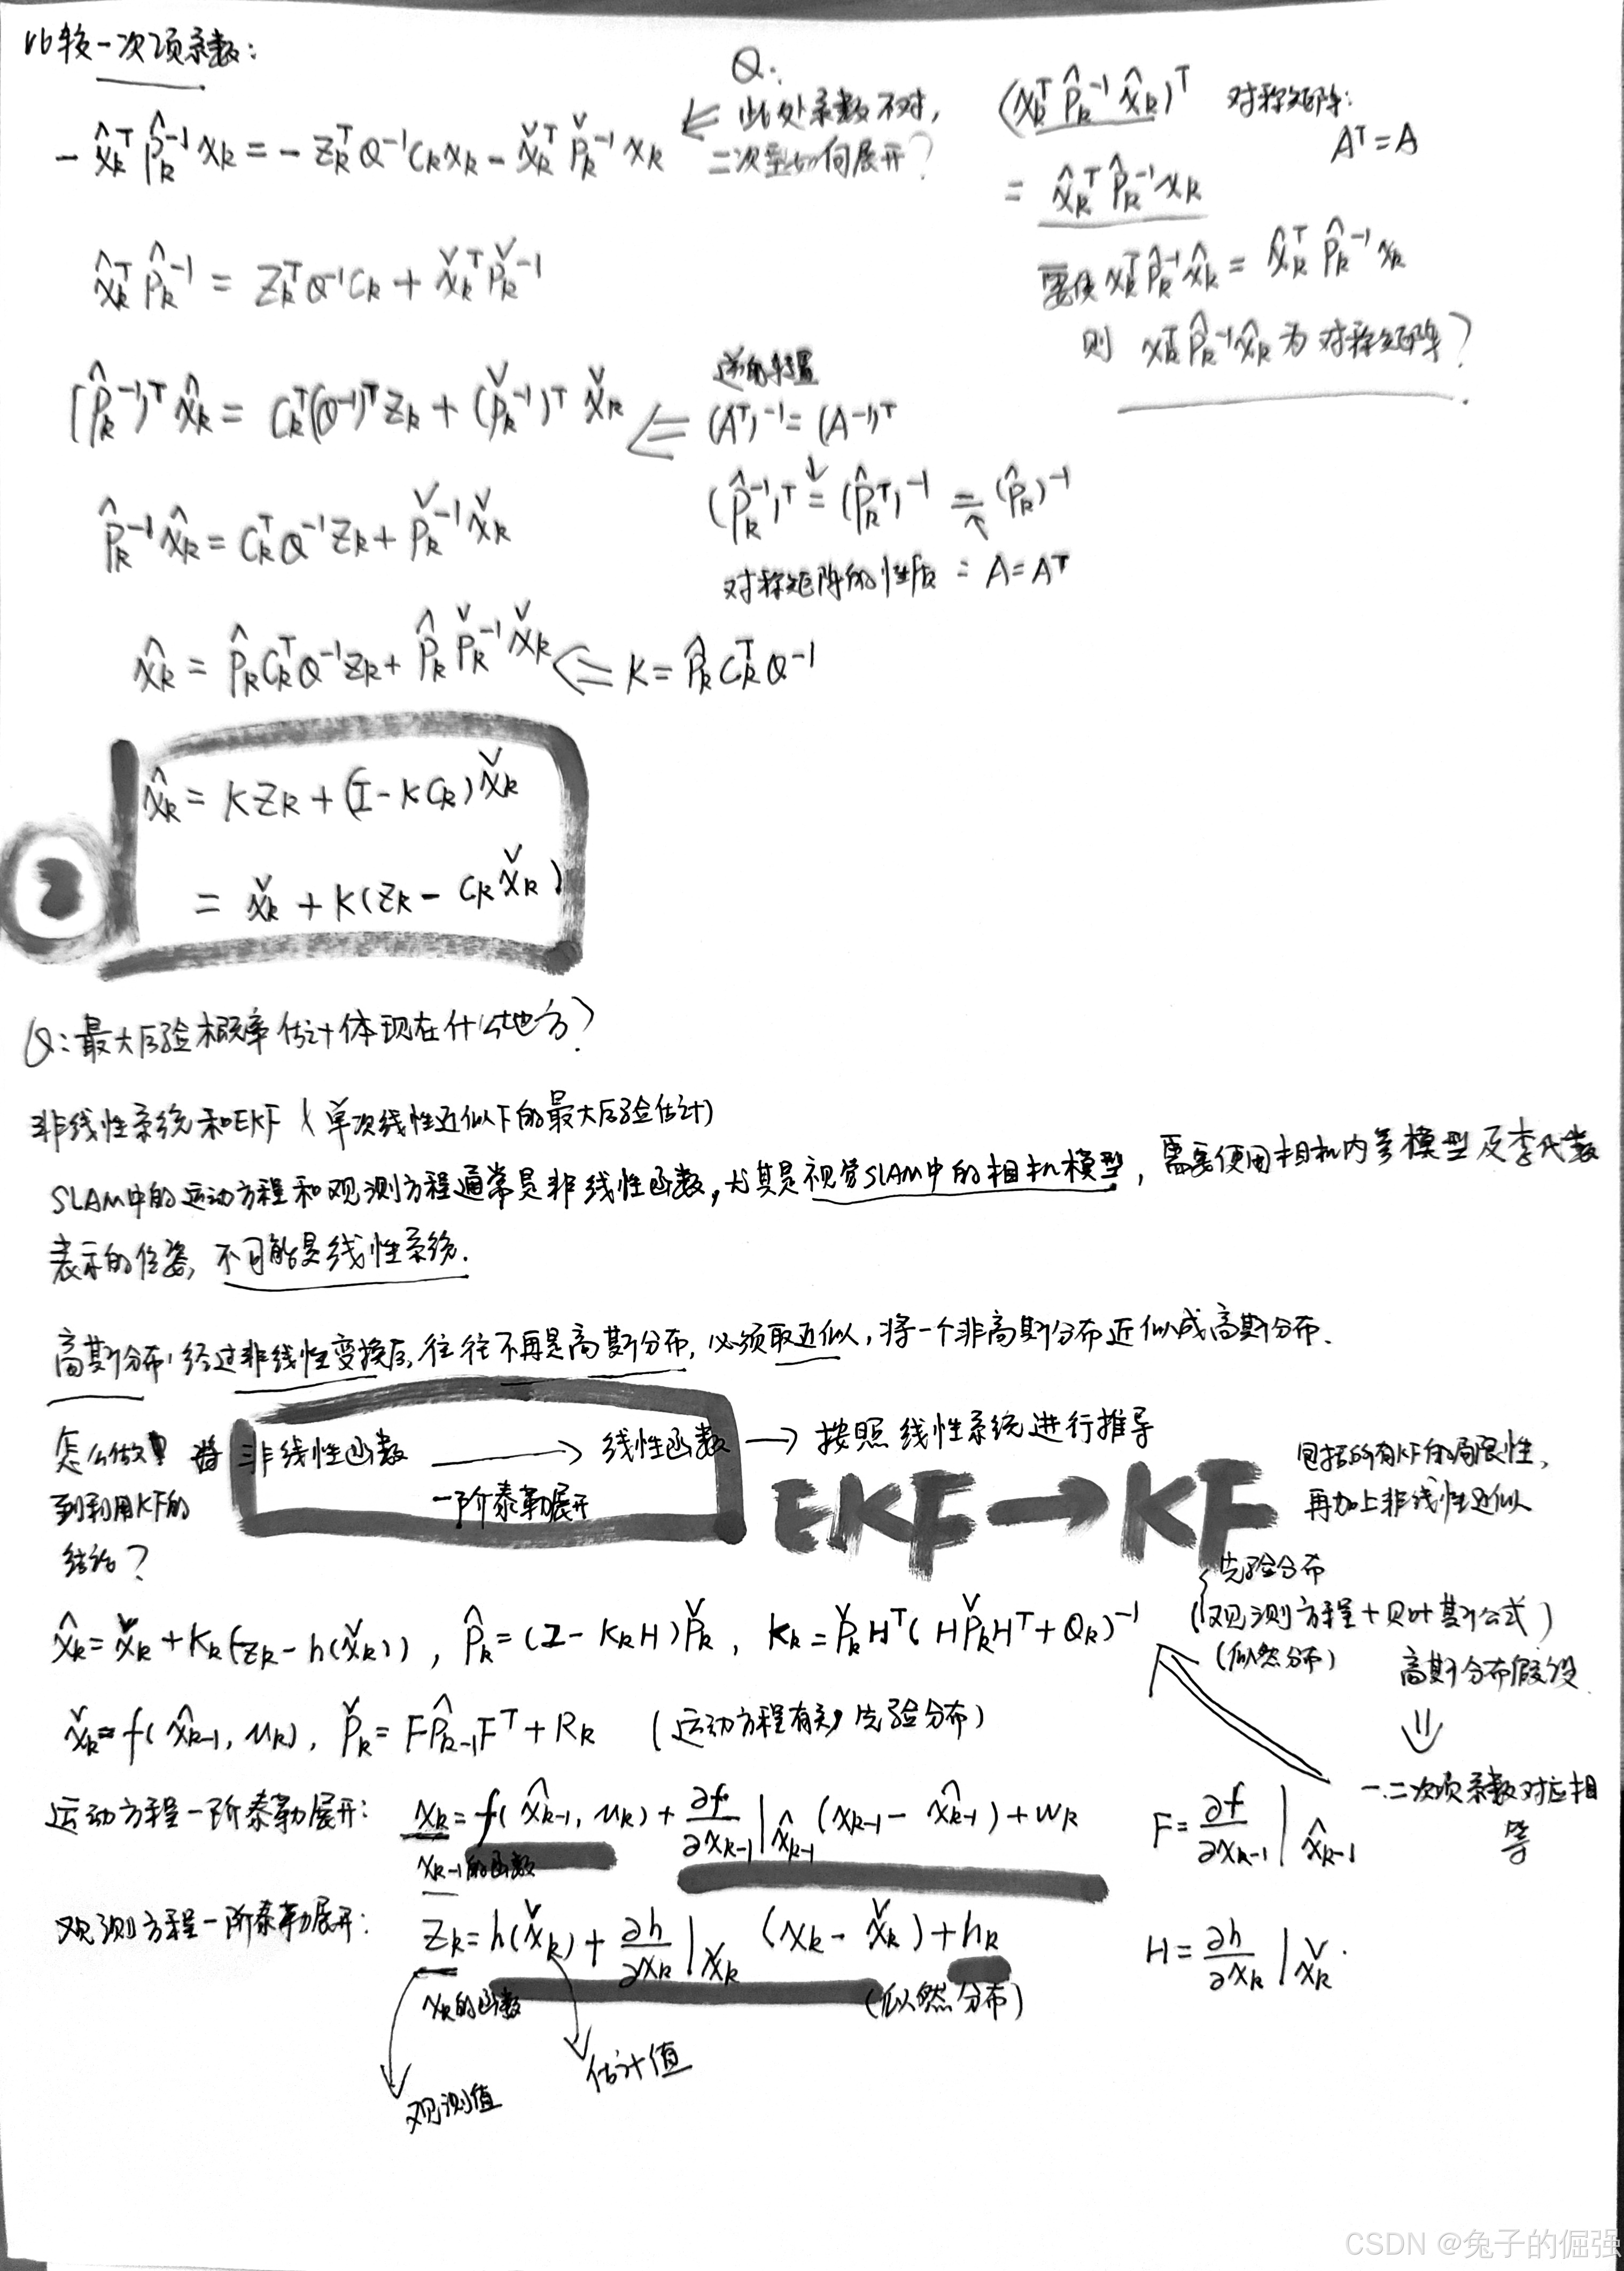 比较一次项系数:
-x̂ₖᵀP̂ₖ⁻¹xₖ = -zₖᵀQ⁻¹Cₖxₖ - x̌ₖᵀP̌ₖ⁻¹xₖ
Q:
⇐ 此处系数不对,
二次型如何展开?
(xₖᵀP̂ₖ⁻¹x̂ₖ)ᵀ 对称矩阵:
Aᵀ=A
= x̂ₖᵀP̂ₖ⁻¹xₖ
要使 xₖᵀP̂ₖ⁻¹x̂ₖ = x̂ₖᵀP̂ₖ⁻¹xₖ
则 xₖᵀP̂ₖ⁻¹x̂ₖ为对称矩阵?
x̂ₖᵀP̂ₖ⁻¹ = zₖᵀQ⁻¹Cₖ + x̌ₖᵀP̌ₖ⁻¹
(P̂ₖ⁻¹)ᵀx̂ₖ = Cₖᵀ(Q⁻¹)ᵀzₖ + (P̌ₖ⁻¹)ᵀx̌ₖ
逆的转置
⇐ (Aᵀ)⁻¹=(A⁻¹)ᵀ
(P̂ₖ⁻¹)ᵀ = (P̂ₖᵀ)⁻¹ = (P̂ₖ)⁻¹
对称矩阵的性质: A=Aᵀ
P̂ₖ⁻¹x̂ₖ = CₖᵀQ⁻¹zₖ + P̌ₖ⁻¹x̌ₖ
x̂ₖ = P̂ₖCₖᵀQ⁻¹zₖ + P̂ₖP̌ₖ⁻¹x̌ₖ ⇐ K=P̂ₖCₖᵀQ⁻¹
2
x̂ₖ = Kzₖ + (I-KCₖ)x̌ₖ
= x̌ₖ + K(zₖ - Cₖx̌ₖ)
Q:最大后验概率估计体现在什么地方?
非线性系统和EKF (单次线性近似下的最大后验估计)
SLAM中的运动方程和观测方程通常是非线性函数,尤其是视觉SLAM中的相机模型,需要使用相机内参模型及李代数
表示的位姿,不可能是线性系统.
高斯分布,经过非线性变换后,往往不再是高斯分布,必须取近似,将一个非高斯分布近似成高斯分布.
怎么做 将 非线性函数 → 线性函数 → 按照线性系统进行推导
一阶泰勒展开
到利用KF的
结论?
EKF→KF
包括所有KF的局限性,
再加上非线性近似
先验分布
(观测方程+贝叶斯公式)
(似然分布)
高斯分布假设
⇓
一.二次项系数对应相
等
x̂ₖ = x̌ₖ + Kₖ(zₖ - h(x̌ₖ)), P̂ₖ = (I - KₖH)P̌ₖ, Kₖ = P̌ₖHᵀ(HP̌ₖHᵀ + Qₖ)⁻¹
x̌ₖ = f(x̂ₖ₋₁, uₖ), P̌ₖ = FP̂ₖ₋₁Fᵀ + Rₖ (运动方程有关,先验分布)
运动方程一阶泰勒展开: xₖ = f(x̂ₖ₋₁, uₖ) + ∂f/∂xₖ₋₁|x̂ₖ₋₁ (xₖ₋₁ - x̂ₖ₋₁) + wₖ F = ∂f/∂xₖ₋₁|x̂ₖ₋₁
xₖ₋₁的函数
观测方程一阶泰勒展开: zₖ = h(x̌ₖ) + ∂h/∂xₖ|x̌ₖ (xₖ - x̌ₖ) + nₖ H = ∂h/∂xₖ|x̌ₖ.
xₖ的函数
(似然分布)
估计值
观测值
CSDN @兔子的倔强